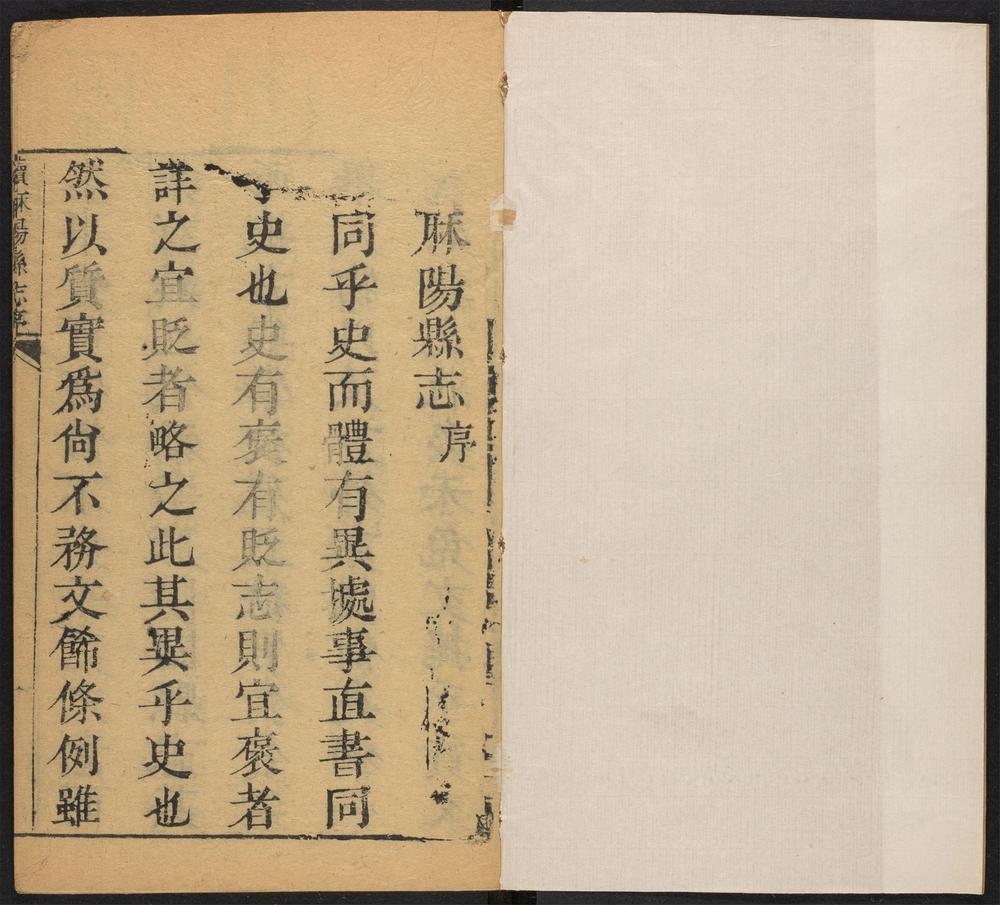 麻陽縣志序
同乎史而體有異據事直書同
乎史也史有褒有貶志則宜褒者
詳之宜貶者略之此其異乎史也
然以質實爲尙不務文飾條例雖
續麻陽縣志序